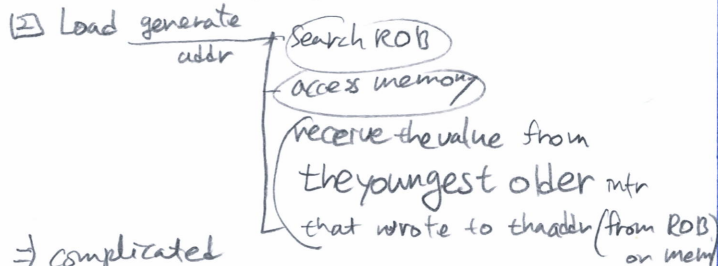 [2] Load generate addr
Search ROB
access memory
receive the value from
the youngest older intr
that wrote to thaaddr (from ROB
or mem)
⇒ complicated